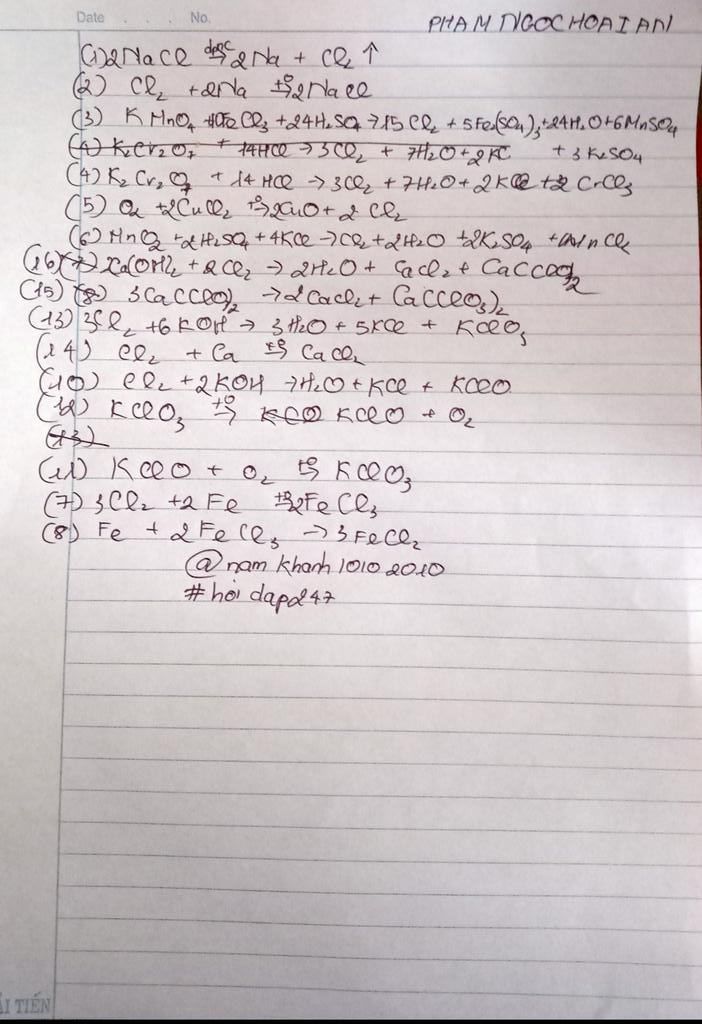 Date . . . No.
PHAM NGOC HOAI AN
(1) 2NaCl đpnc→ 2Na + Cl₂ ↑
(2) Cl₂ + 2Na t°→ 2NaCl
(3) KMnO₄ + 10FeCl₃ + 24H₂SO₄ → 15Cl₂ + 5Fe₂(SO₄)₃ + 24H₂O + 6MnSO₄
(4) K₂Cr₂O₇ + 14HCl → 3Cl₂ + 7H₂O + 2KC + 3K₂SO₄
(4) K₂Cr₂O₇ + 14HCl → 3Cl₂ + 7H₂O + 2KCl + 2CrCl₃
(5) O₂ + 2CuCl₂ t°→ 2CuO + 2Cl₂
(6) MnO₂ + 2H₂SO₄ + 4KCl → Cl₂ + 2H₂O + 2K₂SO₄ + MnCl₂
(16) (7) Ca(OH)₂ + 2Cl₂ → 2H₂O + CaCl₂ + Ca(ClO)₂
(15) (8) 3Ca(ClO)₂ → 2CaCl₂ + Ca(ClO₃)₂
(13) 3Cl₂ + 6KOH → 3H₂O + 5KCl + KClO₃
(14) Cl₂ + Ca t°→ CaCl₂
(10) Cl₂ + 2KOH → H₂O + KCl + KClO
(12) KClO₃ t°→ KClO KClO + O₂
(13)
(11) KClO + O₂ t°→ KClO₃
(7) 3Cl₂ + 2Fe t°→ 2FeCl₃
(8) Fe + 2FeCl₃ → 3FeCl₂
@namkhanh10102010
#hoidap247
ẢI TIẾN